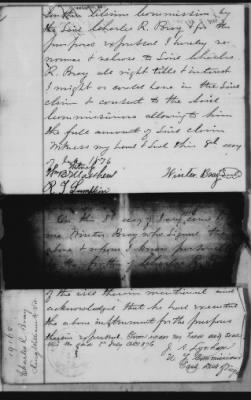 in this claim Commission by
the Said Charles R. Bray & for the
purposes expressed I hereby re-
nounce & release to Said Charles
R. Bray all right title & interest
I might or could have in the Said
claim & consent to the Said
Commissioners allowing to him
the full amount of Said claim
Witness my hand & seal this 8th day
July 1876
Witness
Winter Bray Seal
R. T. Lumpkin
On this 8th day of July came to
me Winter Bray who signed the
above & whom I know
of the said therein mentioned and
acknowledged that he had executed
the above instrument for the purposes
therein expressed. Given under my hand and seal
this the 8th July A D 1876
J. N. Lyster
U. S. Commissioner
Charles R. Bray